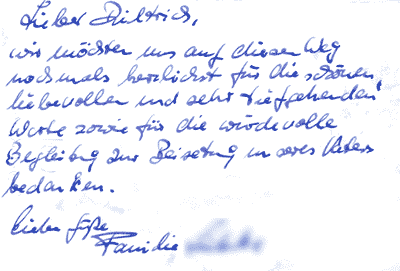 Lieber Dietrich,
wir möchten uns auf diesen Weg
nochmals herzlichst für die schönen,
liebevollen und sehr tiefgehenden
Worte sowie für die würdevolle
Begleitung zur Beisetzung unseres Vaters
bedanken.
Liebe Grüße
Familie